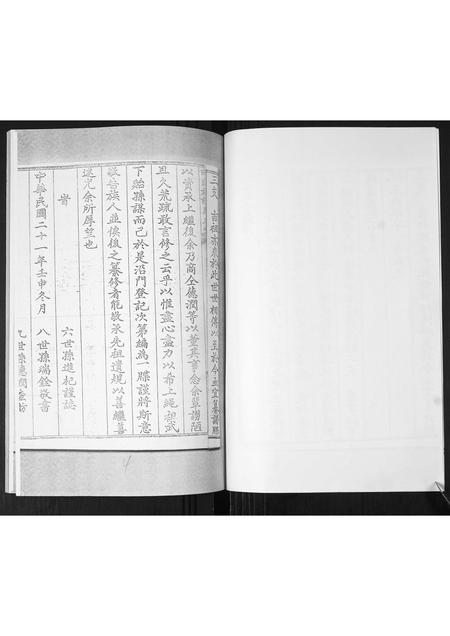 三
以資承上繼後余乃商仝德潤等以董其事念余草謭陋
且久荒疏敢言修之云乎以惟盡心盡力以希上繩祖武
下貽孫謀而已於是沿門登記次第編為一牒謹將斯意
敬告族人並俟後之纂修者能敬承先祖遺規以善繼善
述尤余所厚望也
旹 六世孫進杞謹誌
中華民國二十一年壬申冬月 八世孫瑞銓敬書
九世孫惠